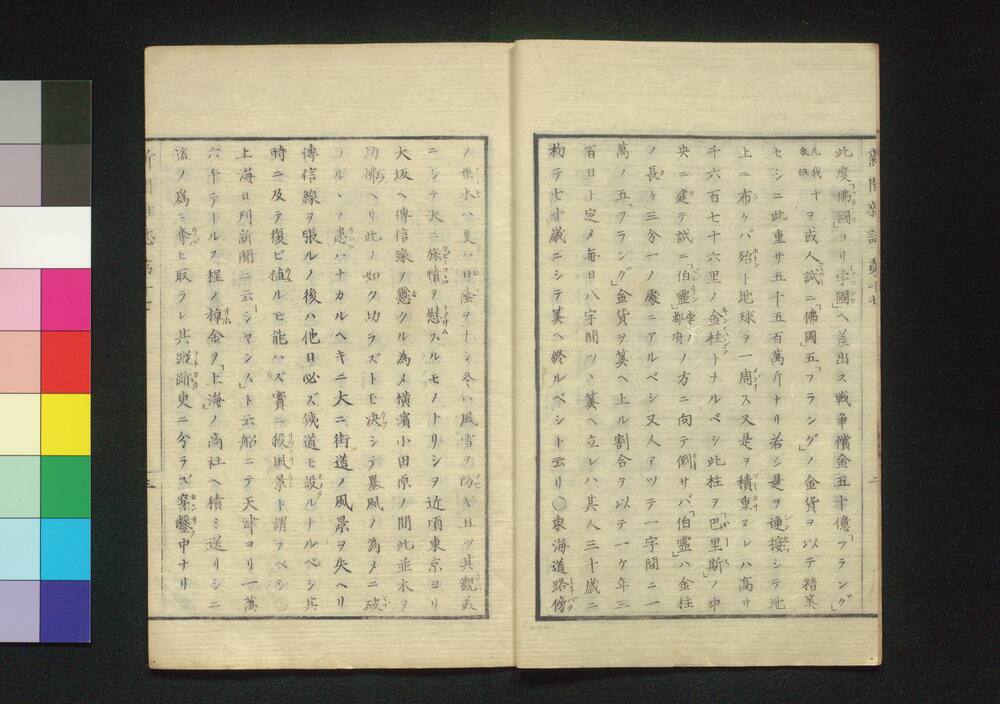 此度「佛國」ヨリ孛國」ヘ差出ス戰争償金五十億「フラング」
九我十
ヲ或人試ニ「佛國」五「フラング」ノ金貨ヲ以テ積算
セシニ此重サ五千五百萬斤ナリ若シ是ヲ連接シテ地
上ニ布ケバ殆ト地球ヲ一周ス又是ヲ積重ヌレハ高サ
千六百七十六里ノ金柱トナルベシ此柱ヲ「巴里斯」ノ中
央ニ建テ試ニ「伯靈」孛ノ都府ノ方ニ向テ倒サバ「伯靈」ハ金柱
ノ長ケ三分一ノ處ニアルベシ又人アツテ一字間ニ一
萬ノ五「フラング」金貨ヲ筭ヘ上ル割合ヲ以テ一ケ年三
百日ト定メ毎日八字間ツヽ筭ヘ立レハ其人三十歳ニ
テ七十歳ニシテ筭ヘ終ルベシト云リ○東海道路傍
ノ並木ハ夏ハ日蔭ヲナシ冬ハ風雪ヲ防キ且ツ其觀美
ニシテ大ニ旅情ヲ慰スルモノトリシヲ近頃東京ヨリ
大坂ヘ傳信線ヲ懸クル為メ横濱小田原ノ間此並木ヲ
切佛ヘリ此ノ如ク切ラズトモ决シテ暴風ノ為メニ破
ルヽノ患ハナカルヘキニ大ニ街道ノ風景ヲ失ヘリ
傳信線ヲ張ルノ後ハ他日必ズ鐵道モ設ルナルベシ其
時ニ及テ復ビ植ルモ能ハズ實ニ殺風景ト謂フベシ○
上海日刋新聞ニ云「シマンス」ト云船ニテ天津ヨリ一萬
六千テールス程ノ棹金ヲ「上海」ノ商社ヘ積ミ送リシニ
盗ノ為ニ奪ヒ取ラレ其蹤跡更ニ分ラズ穿鑿中ナリ